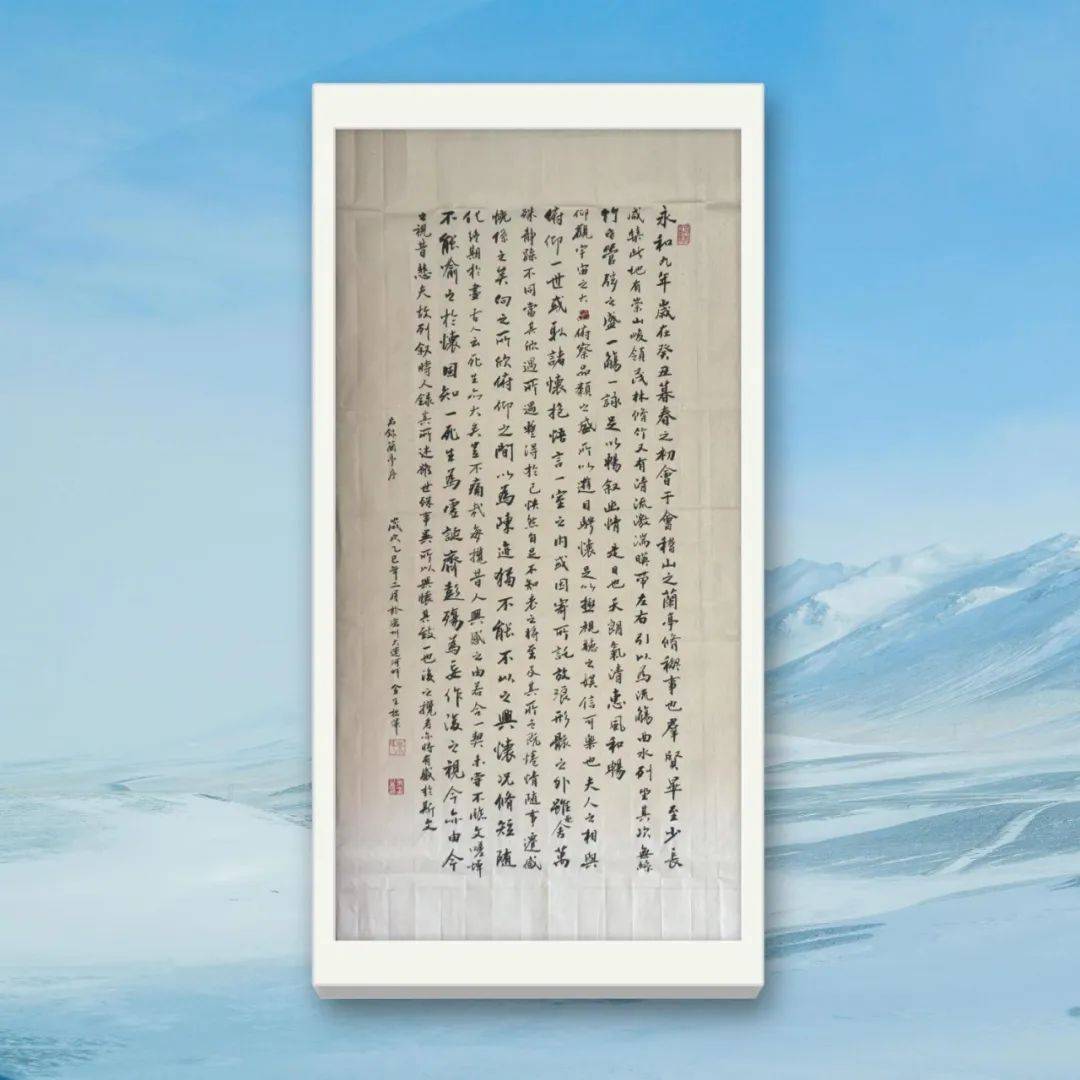 永和九年歲在癸丑暮春之初會于會稽山之蘭亭脩禊事也羣賢畢至少長
咸集此地有崇山峻領茂林脩竹又有清流激湍暎帶左右引以為流觴曲水列坐其次無絲
竹管弦之盛一觴一詠足以暢叙幽情是日也天朗氣清惠風和暢
仰觀宇宙之大俯察品類之盛所以遊目騁懷足以極視聽之娛信可樂也夫人之相與
俯仰一世或取諸懷抱悟言一室之内或因寄所託放浪形骸之外雖趣舍萬
殊靜躁不同當其欣所遇暫得於己快然自足不知老之將至及其所之既惓情隨事遷感
慨係之矣向之所欣俯仰之間以為陳迹猶不能不以之興懷況脩短隨
化終期於盡古人云死生亦大矣豈不痛哉每攬昔人興感之由若合一契未嘗不臨文嗟悼
不能喻之於懷固知一死生為虛誕齊彭殤為妄作後之視今亦由今
之視昔悲夫故列叙時人錄其所述雖世殊事異所以興懷其致一也後之攬者亦將有感於斯文
右錄蘭亭序
歲次乙巳年二月於滄州大運河畔